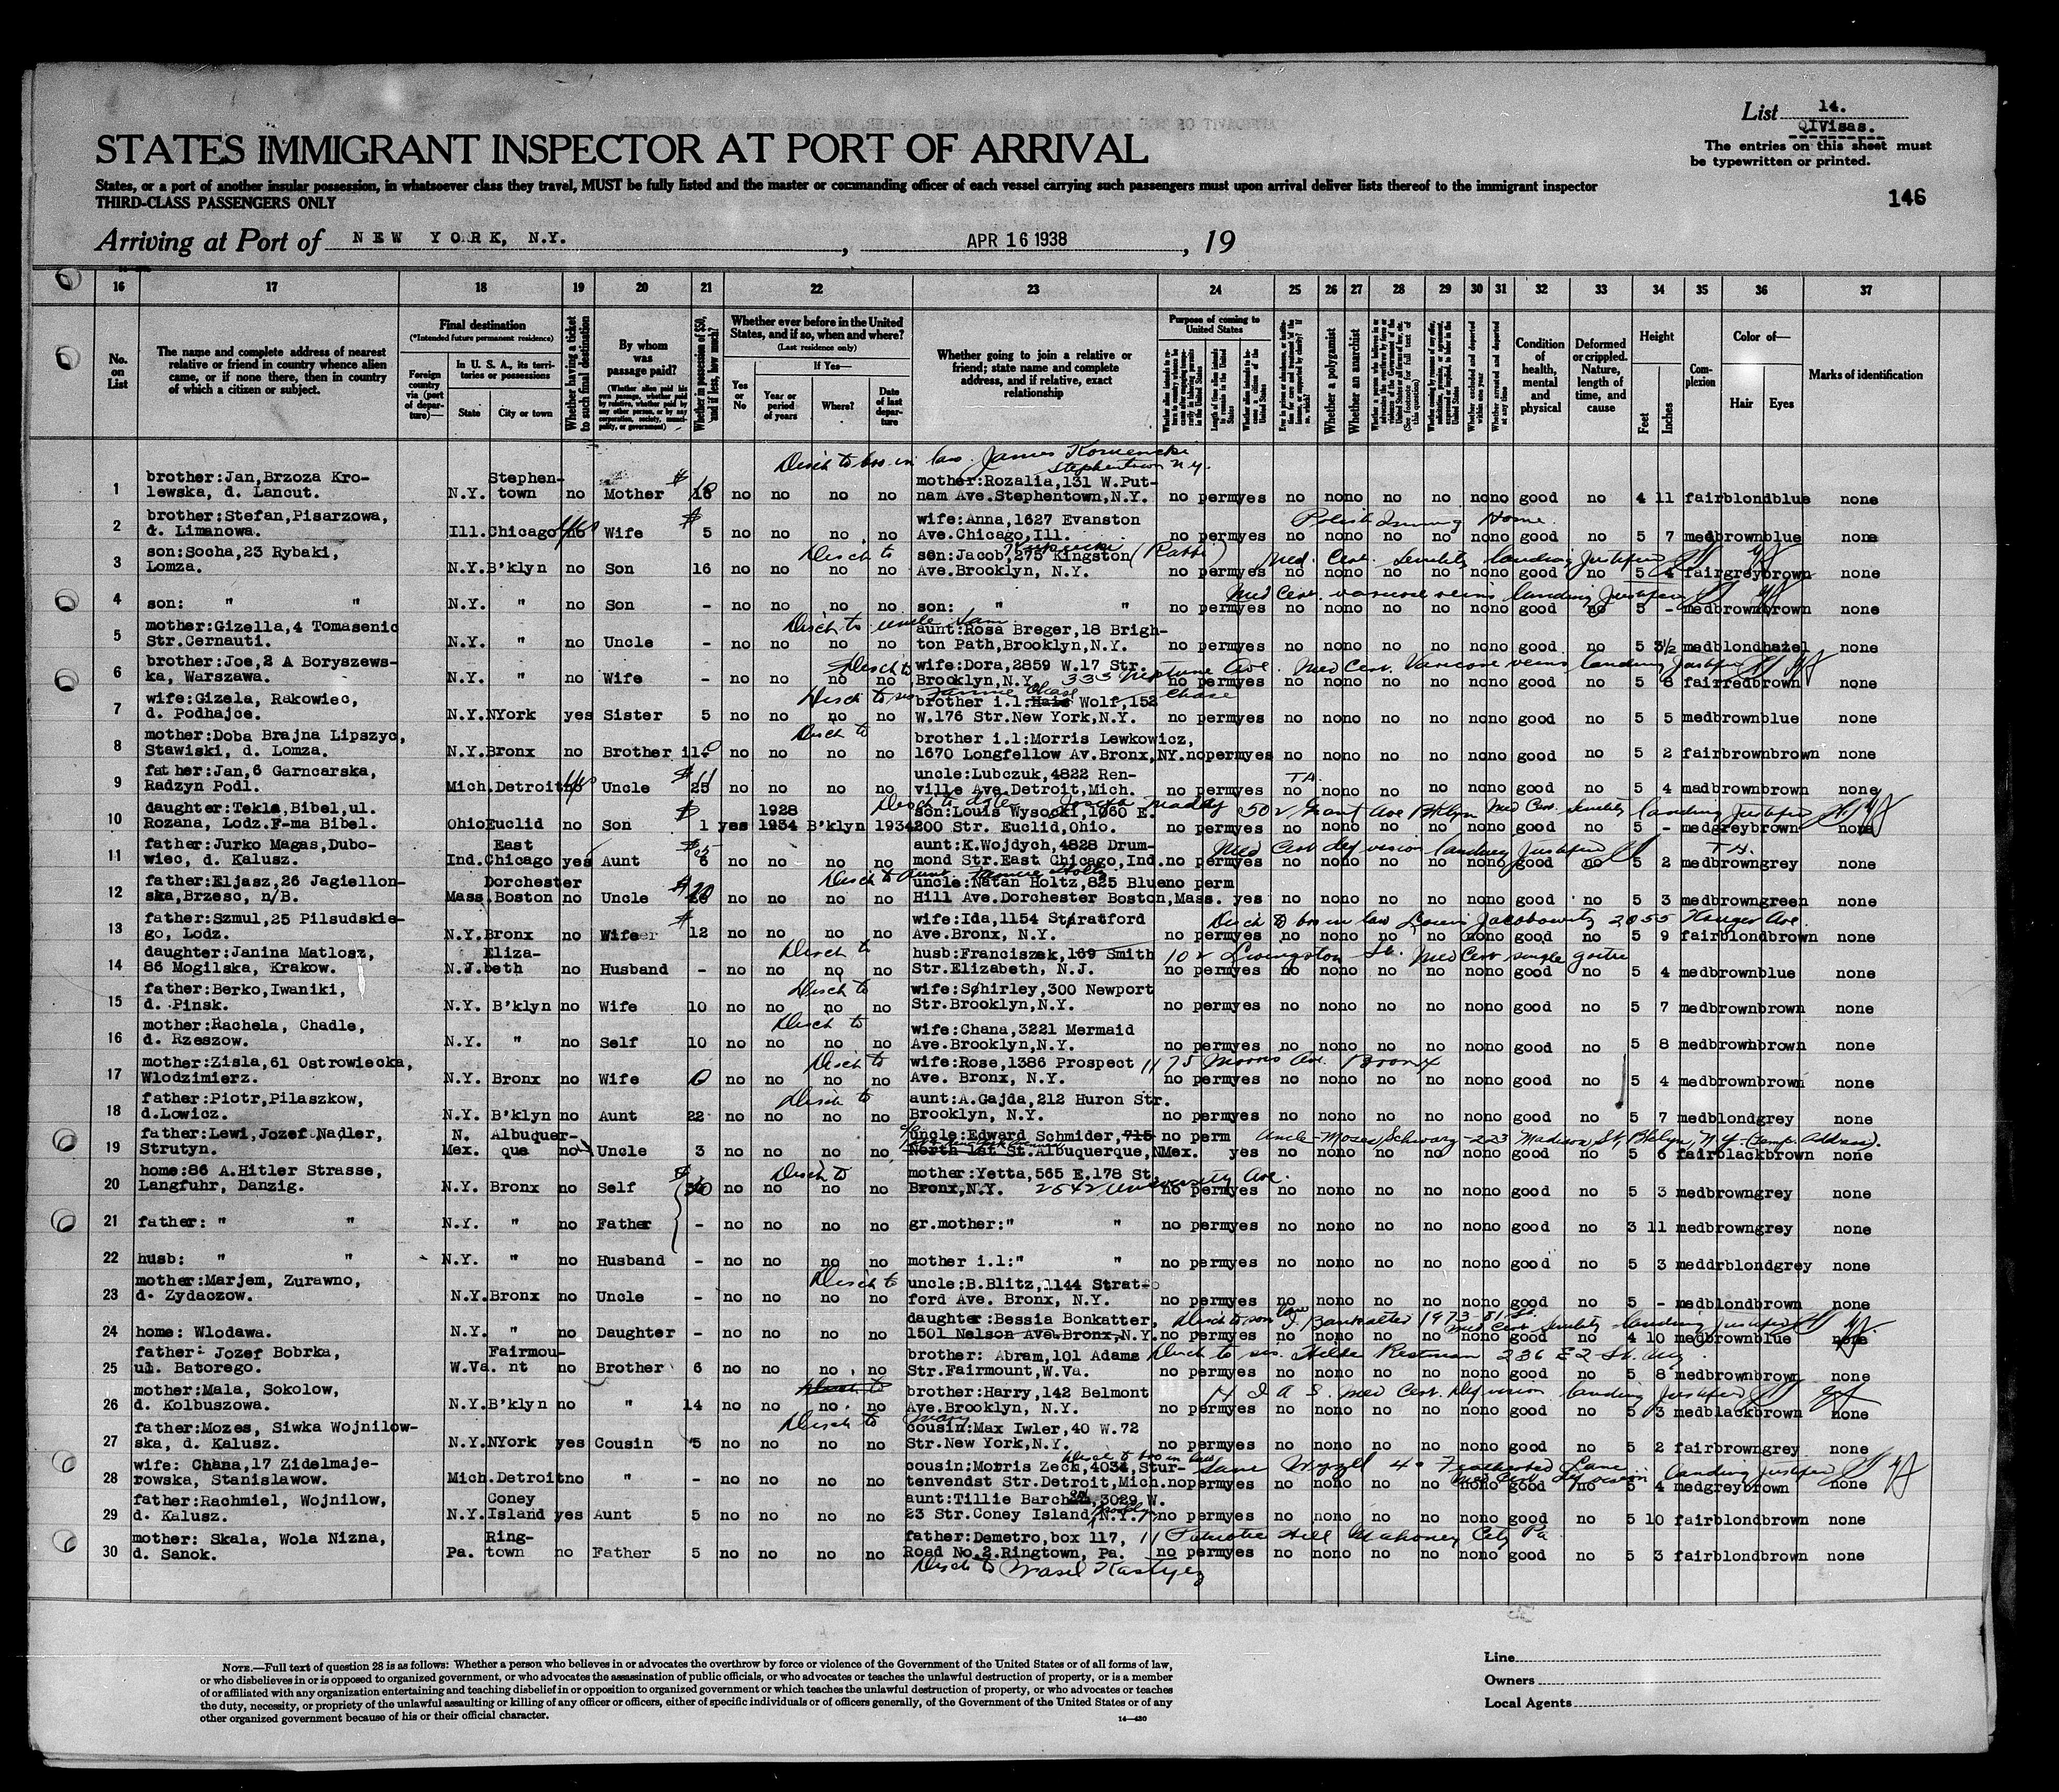 List 14.
QIVisas.
STATES IMMIGRANT INSPECTOR AT PORT OF ARRIVAL
The entries on this sheet must
be typewritten or printed.
States, or a port of another insular possession, in whatsoever class they travel, MUST be fully listed and the master or commanding officer of each vessel carrying such passengers must upon arrival deliver lists thereof to the immigrant inspector
THIRD-CLASS PASSENGERS ONLY
146
Arriving at Port of NEW YORK, N.Y. , APR 16 1938 , 19
16 17 18 19 20 21 22 23 24 25 26 27 28 29 30 31 32 33 34 35 36 37
No. on List
The name and complete address of nearest relative or friend in country whence alien came, or if none there, then in country of which a citizen or subject.
Final destination
(*Intended future permanent residence)
Foreign country via (port of departure)—
In U. S. A., its territories or possessions
State
City or town
Whether having a ticket to such final destination
By whom was passage paid?
(Whether alien paid his own passage, whether paid by relative, whether paid by any other person, or by any corporation, society, municipality, or government)
Whether in possession of $50, and if less, how much?
Whether ever before in the United States, and if so, when and where?
(Last residence only)
If Yes—
Yes or No
Year or period of years
Where?
Date of last departure
Whether going to join a relative or friend; state name and complete address, and if relative, exact relationship
Purpose of coming to United States
Whether a polygamist
Whether an anarchist
Condition of health, mental and physical
Deformed or crippled. Nature, length of time, and cause
Height
Feet
Inches
Complexion
Color of—
Hair
Eyes
Marks of identification
Disch to bro in law James
Stephentown N.Y.
1 brother:Jan,Brzoza Kro- Stephen- mother:Rozalia,131 W.Put-
lewska, d. Lancut. N.Y. town no Mother $ no no no no nam Ave.Stephentown,N.Y. no perm yes no no no no no no no good no 4 11 fair blond blue none
2 brother:Stefan,Pisarzowa, $ wife:Anna,1627 Evanston Polish Immig Home
d. Limanowa. Ill. Chicago yes Wife 5 no no no no Ave.Chicago,Ill. no perm yes no no no no no no no good no 5 7 med brown blue none
3 son:Socha,23 Rybaki, Disch to son:Jacob,275 Kingston (Rabbi) Med. Cert. Senility landing justified
Lomza. N.Y. B'klyn no Son 16 no no no no Ave.Brooklyn, N.Y. no perm yes no no no no no no no good no 5 4 fair grey brown none
Med Cert. varicose veins landing justified
4 son: " " N.Y. " no Son - no no no no son: " " no perm yes no no no no no no no good no 5 - med brown brown none
5 mother:Gizella,4 Tomasenic Disch to uncle Sam aunt:Rosa Breger,18 Brigh-
Str.Cernauti. N.Y. " no Uncle - no no no no ton Path,Brooklyn,N.Y. no perm yes no no no no no no no good no 5 3½ med blond hazel none
6 brother:Joe,2 A Boryszews- Disch to wife:Dora,2859 W.17 Str. Med Cert. Varicose veins landing justified
ka, Warszawa. N.Y. " no Wife - no no no no Brooklyn,N.Y. 333 Neptune Ave. no perm yes no no no no no no no good no 5 8 fair red brown none
7 wife:Gizela, Rakowiec, Disch to brother i.l: Wolf,152 Chase
d. Podhajce. N.Y. NYork yes Sister 5 no no no no W.176 Str.New York,N.Y. no perm yes no no no no no no no good no 5 5 med brown blue none
8 mother:Doba Brajna Lipszyc, Disch to brother i.l:Morris Lewkowicz,
Stawiski, d. Lomza. N.Y. Bronx no Brother il no no no no 1670 Longfellow Av.Bronx,NY. no perm yes no no no no no no no good no 5 2 fair brown brown none
9 father:Jan,6 Garncarska, $ uncle:Lubczuk,4822 Ren-
Radzyn Podl. Mich. Detroit yes Uncle 25 no no no no ville Ave.Detroit,Mich. no perm yes no no no no no no no good no 5 4 mad brown brown none
10 daughter:Tekla,Bibel,ul. $ 1928 Disch to son:Louis Wysocki,1060 E. 502 Grant Ave Bklyn Med Cert. Senility landing justified
Rozana, Lodz.F-ma Bibel. Ohio Euclid no Son 1 yes 1934 B'klyn 1934 200 Str. Euclid,Ohio. no perm yes no no no no no no no good no 5 - med grey brown none
11 father:Jurko Magas,Dubo- East aunt:K.Wojdych,4828 Drum- Med Cert def vision landing justified
wiec, d. Kalusz. Ind. Chicago yes Aunt no no no no mond Str.East Chicago,Ind. no perm yes no no no no no no no good no 5 2 med brown grey none
12 father:Eljasz,26 Jagiellon- Dorchester $ Disch to Aunt uncle:Natan Holtz,825 Blue no perm
ska,Brzesc, n/B. Mass. Boston no Uncle no no no no Hill Ave.Dorchester Boston,Mass. yes no no no no no no no good no 5 3 med brown green none
13 father:Szmul,25 Pilsudskie- $ wife:Ida,1154 Stratford Disch to bro in law Louis Jacobowitz
go, Lodz. N.Y. Bronx no Wife 12 no no no no Ave.Bronx, N.Y. no perm yes no no no no no no no good no 5 9 fair blond brown none
14 daughter:Janina Matlosz, Eliza- Disch to husb:Franciszek,169 Smith 102 Livingston St. Med Cert single goitre
86 Mogilska, Krakow. N.J. beth no Husband - no no no no Str.Elizabeth, N.J. no perm yes no no no no no no no good no 5 4 med brown blue none
15 father:Berko,Iwaniki, Disch to wife:Shirley,300 Newport
d. Pinsk. N.Y. B'klyn no Wife 10 no no no no Str.Brooklyn,N.Y. no perm yes no no no no no no no good no 5 7 med brown brown none
16 mother:Rachela, Chadle, Disch to wife:Chana,3221 Mermaid
d. Rzeszow. N.Y. " no Self 10 no no no no Ave.Brooklyn,N.Y. no perm yes no no no no no no no good no 5 8 med brown brown none
17 mother:Zisla,61 Ostrowiecka, Disch to wife:Rose,1386 Prospect 1175 Morris Ave. Bronx
Wlodzimierz. N.Y. Bronx no Wife 0 no no no no Ave. Bronx, N.Y. no perm yes no no no no no no no good 5 4 med brown brown none
18 father:Piotr,Pilaszkow, Disch to aunt:A.Gajda,212 Huron Str.
d.Lowicz. N.Y. B'klyn no Aunt 22 no no no no Brooklyn, N.Y. no perm yes no no no no no no no good no 5 7 med blond grey none
19 father:Lewi,Jozef Nadler, N. Albuquer- uncle:Edward Schmider,715 no perm Uncle-Moses Schwarz-223 Madison St, Bklyn, N.Y. (temp. Address).
Strutyn. Mex. que no Uncle 3 no no no no North 1st St.Albuquerque,NMex. yes no no no no no no no good no 5 6 fair black brown none
20 home:86 A.Hitler Strasse, $ Disch to mother:Yetta,565 E.178 St.
Langfuhr, Danzig. N.Y. Bronx no Self no no no no Bronx,N.Y. 2542 University Ave. no perm yes no no no no no no no good no 5 3 med brown grey none
21 father: " " N.Y. " no Father - no no no no gr.mother:" " no perm yes no no no no no no no good no 3 11 med brown grey none
22 husb: " " N.Y. " no Husband - no no no no mother i.l:" " no perm yes no no no no no no no good no 5 3 med drblond grey none
23 mother:Marjem, Zurawno, Disch to uncle:B.Blitz,1144 Strat-
d. Zydaczow. N.Y. Bronx no Uncle - no no no no ford Ave. Bronx, N.Y. no perm yes no no no no no no no good no 5 - med blond brown none
24 daughter:Bessia Bonkatter, Disch to son in law 1973-81 St. Med Cert senility landing justified
home: Wlodawa. N.Y. " no Daughter - no no no no 1501 Nelson Ave.Bronx,N.Y. no perm yes no no no no no no no good no 4 10 med brown blue none
25 father: Jozef Bobrka, Fairmou- brother: Abram,101 Adams Disch to sis. Hilda 236 E 2 St. NY
ul. Batorego. W.Va. nt no Brother 6 no no no no Str.Fairmount,W.Va. no perm yes no no no no no no no good no 5 8 med brown brown none
26 mother:Mala, Sokolow, Disch to brother:Harry,142 Belmont H I A S. Med Cert. Def vision landing justified
d. Kolbuszowa. N.Y. B'klyn no " 14 no no no no Ave.Brooklyn, N.Y. no perm yes no no no no no no no good no 5 3 med black brown none
27 father:Mozes, Siwka Wojnilow- Disch to Mary cousin:Max Iwler,40 W.72
ska, d. Kalusz. N.Y. NYork yes Cousin 5 no no no no Str.New York,N.Y. no perm yes no no no no no no no good no 5 2 fair brown grey none
28 wife: Chana,17 Zidelmaje- Disch to bro in law cousin:Morris Zech,4034,Stur- 40 Featherbed Lane Med Cert Def vision landing justified
rowska, Stanislawow. Mich. Detroit no " - no no no no tenvendst Str.Detroit,Mich. no perm yes no no no no no no no good no 5 4 med grey brown none
29 father:Rachmiel, Wojnilow, Coney aunt:Tillie Barch,3029 W.
d. Kalusz. N.Y. Island yes Aunt 5 no no no no 23 Str.Coney Island, Brooklyn N.Y. no perm yes no no no no no no no good no 5 10 fair blond brown none
30 mother: Skala, Wola Nizna, Ring- father:Demetro,box 117, 11 Patriotic Hill Mahoney City Pa
d. Sanok. Pa. town no Father 5 no no no no Road No.2.Ringtown, Pa. no perm yes no no no no no no no good no 5 3 fair blond brown none
Disch to Wasil
NOTE.—Full text of question 28 is as follows: Whether a person who believes in or advocates the overthrow by force or violence of the Government of the United States or of all forms of law,
or who disbelieves in or is opposed to organized government, or who advocates the assassination of public officials, or who advocates or teaches the unlawful destruction of property, or is a member
of or affiliated with any organization entertaining and teaching disbelief in or opposition to organized government or which teaches the unlawful destruction of property, or who advocates or teaches
the duty, necessity, or propriety of the unlawful assaulting or killing of any officer or officers, either of specific individuals or of officers generally, of the Government of the United States or of any
other organized government because of his or their official character.
14—430
Line
Owners
Local Agents